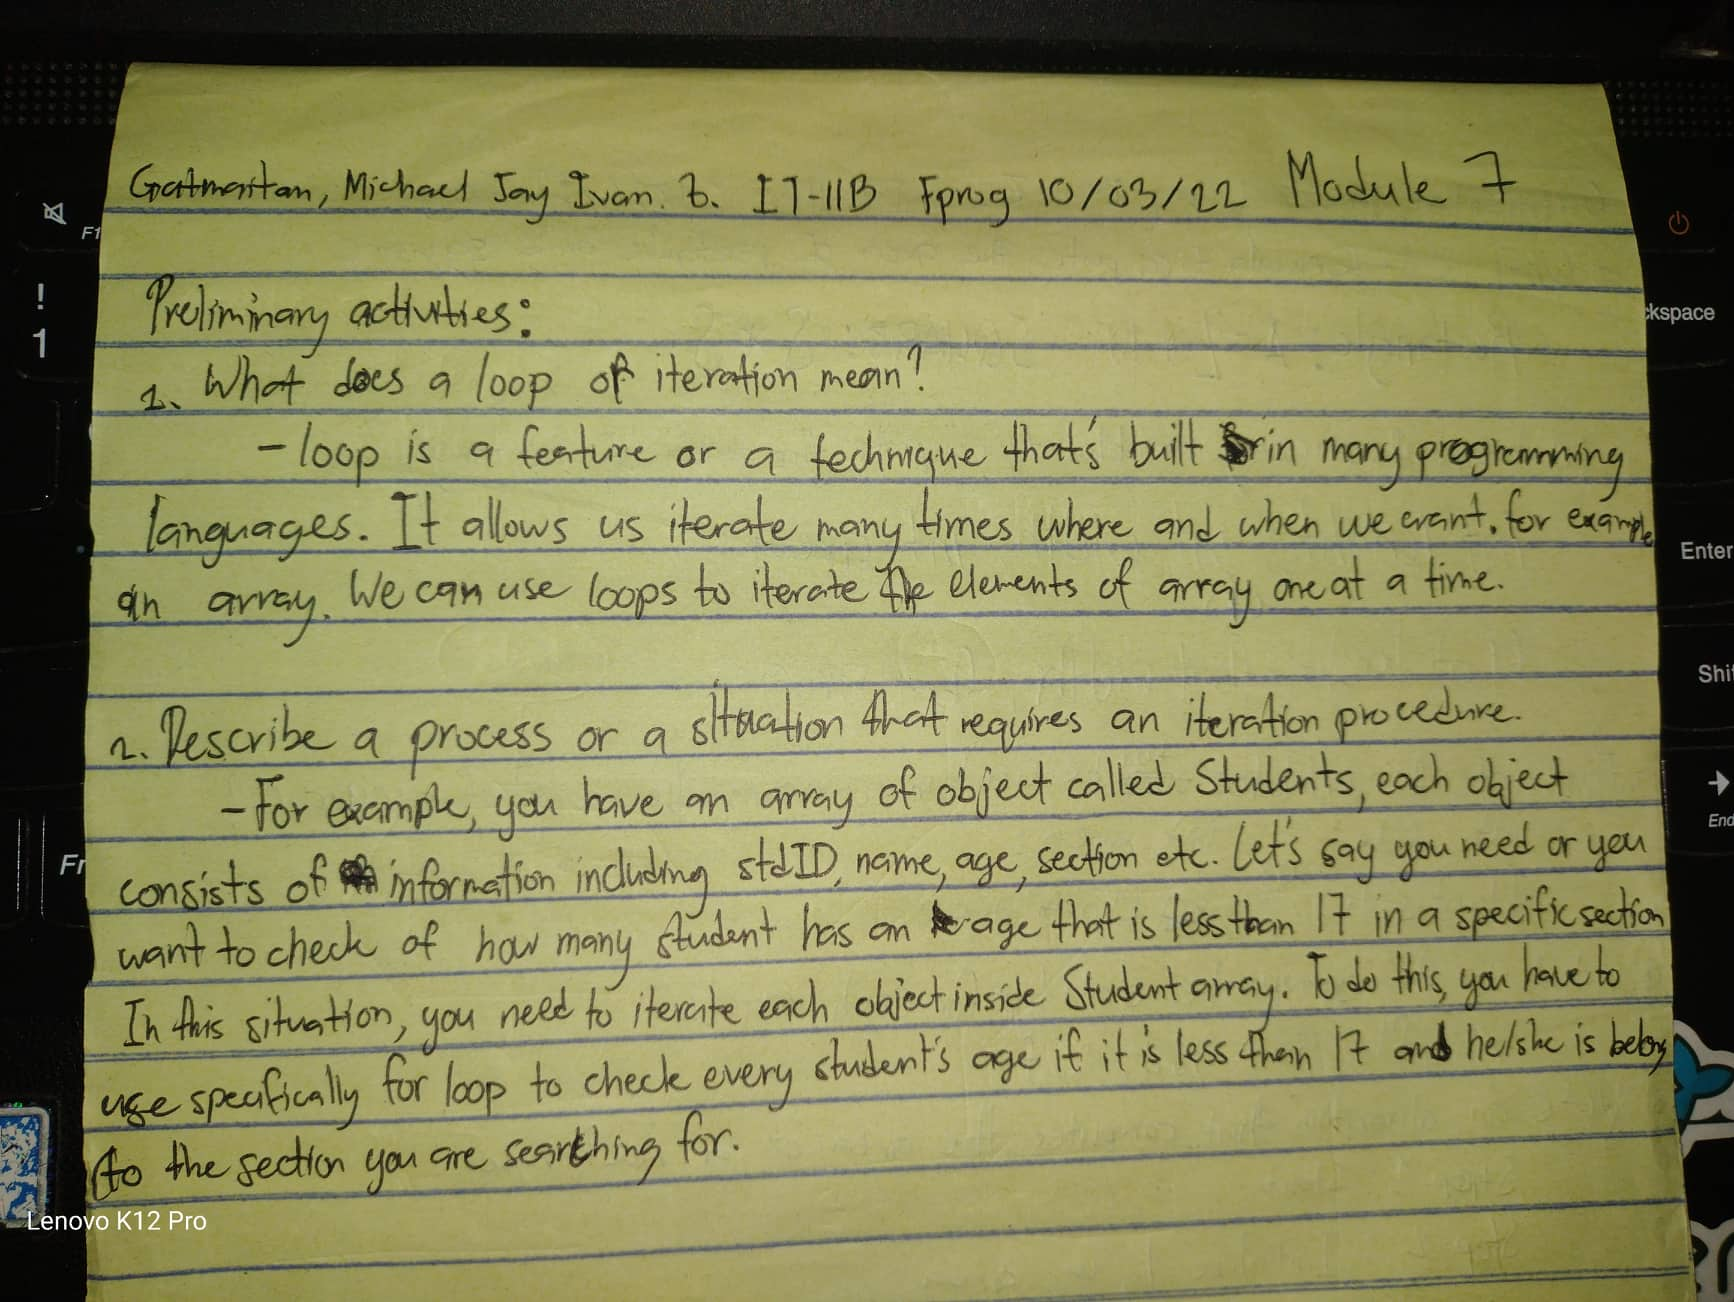 Gatmaitan, Michael Jay Ivan. Z. IT-11B Fprog 10/03/22 Module 7
Preliminary activities:
1. What does a loop of iteration mean?
- loop is a feature or a technique that's built in many programming
languages. It allows us iterate many times where and when we want. for example
an array. We can use loops to iterate the elements of array one at a time.
2. Describe a process or a situation that requires an iteration procedure.
- For example, you have an array of object called Students, each object
consists of information including stdID, name, age, section etc. Let's say you need or you
want to check of how many student has an age that is less than 17 in a specific section
In this situation, you need to iterate each object inside Student array. To do this, you have to
use specifically for loop to check every student's age if it is less than 17 and he/she is belong
to the section you are searching for.
Lenovo K12 Pro
F1
!
1
Fn
kspace
Enter
Shi
End